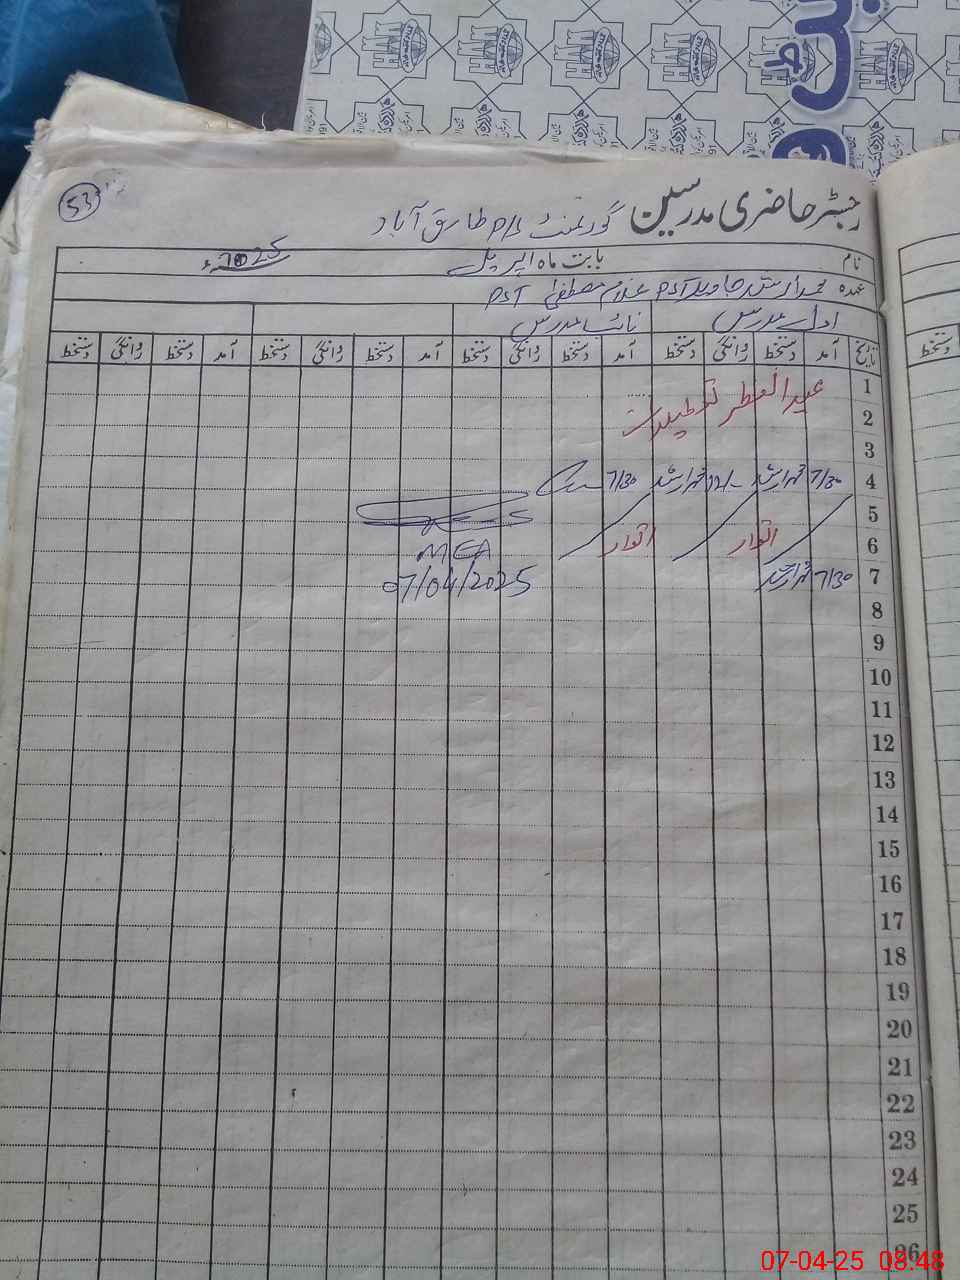 53
رجسٹر حاضری مدرسین گورنمنٹ P/S طارق آباد
نام بابت ماہ اپریل 2025ء
عہدہ محمد ارشد جاوید PST غلام مصطفیٰ PST
اول مدرس نائب مدرس
تاریخ آمد دستخط روانگی دستخط آمد دستخط روانگی دستخط آمد دستخط روانگی دستخط آمد دستخط روانگی دستخط
1 عیدالفطر تعطیلات
2
3
4 7/30 محمد ارشد 12/- محمد ارشد 7/30
5
6 اتوار اتوار MEA
7 7/30 محمد ارشد 07/04/2025
8
9
10
11
12
13
14
15
16
17
18
19
20
21
22
23
24
25
26
دستخط
07-04-25 08:48